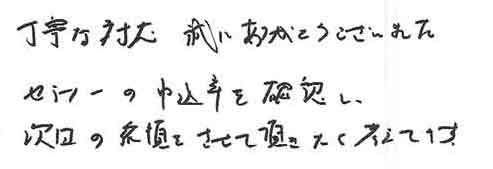 丁寧な対応 誠にありがとうございました
セミナーの申込率を確認し、
次回の依頼をさせて頂きたく考えてます